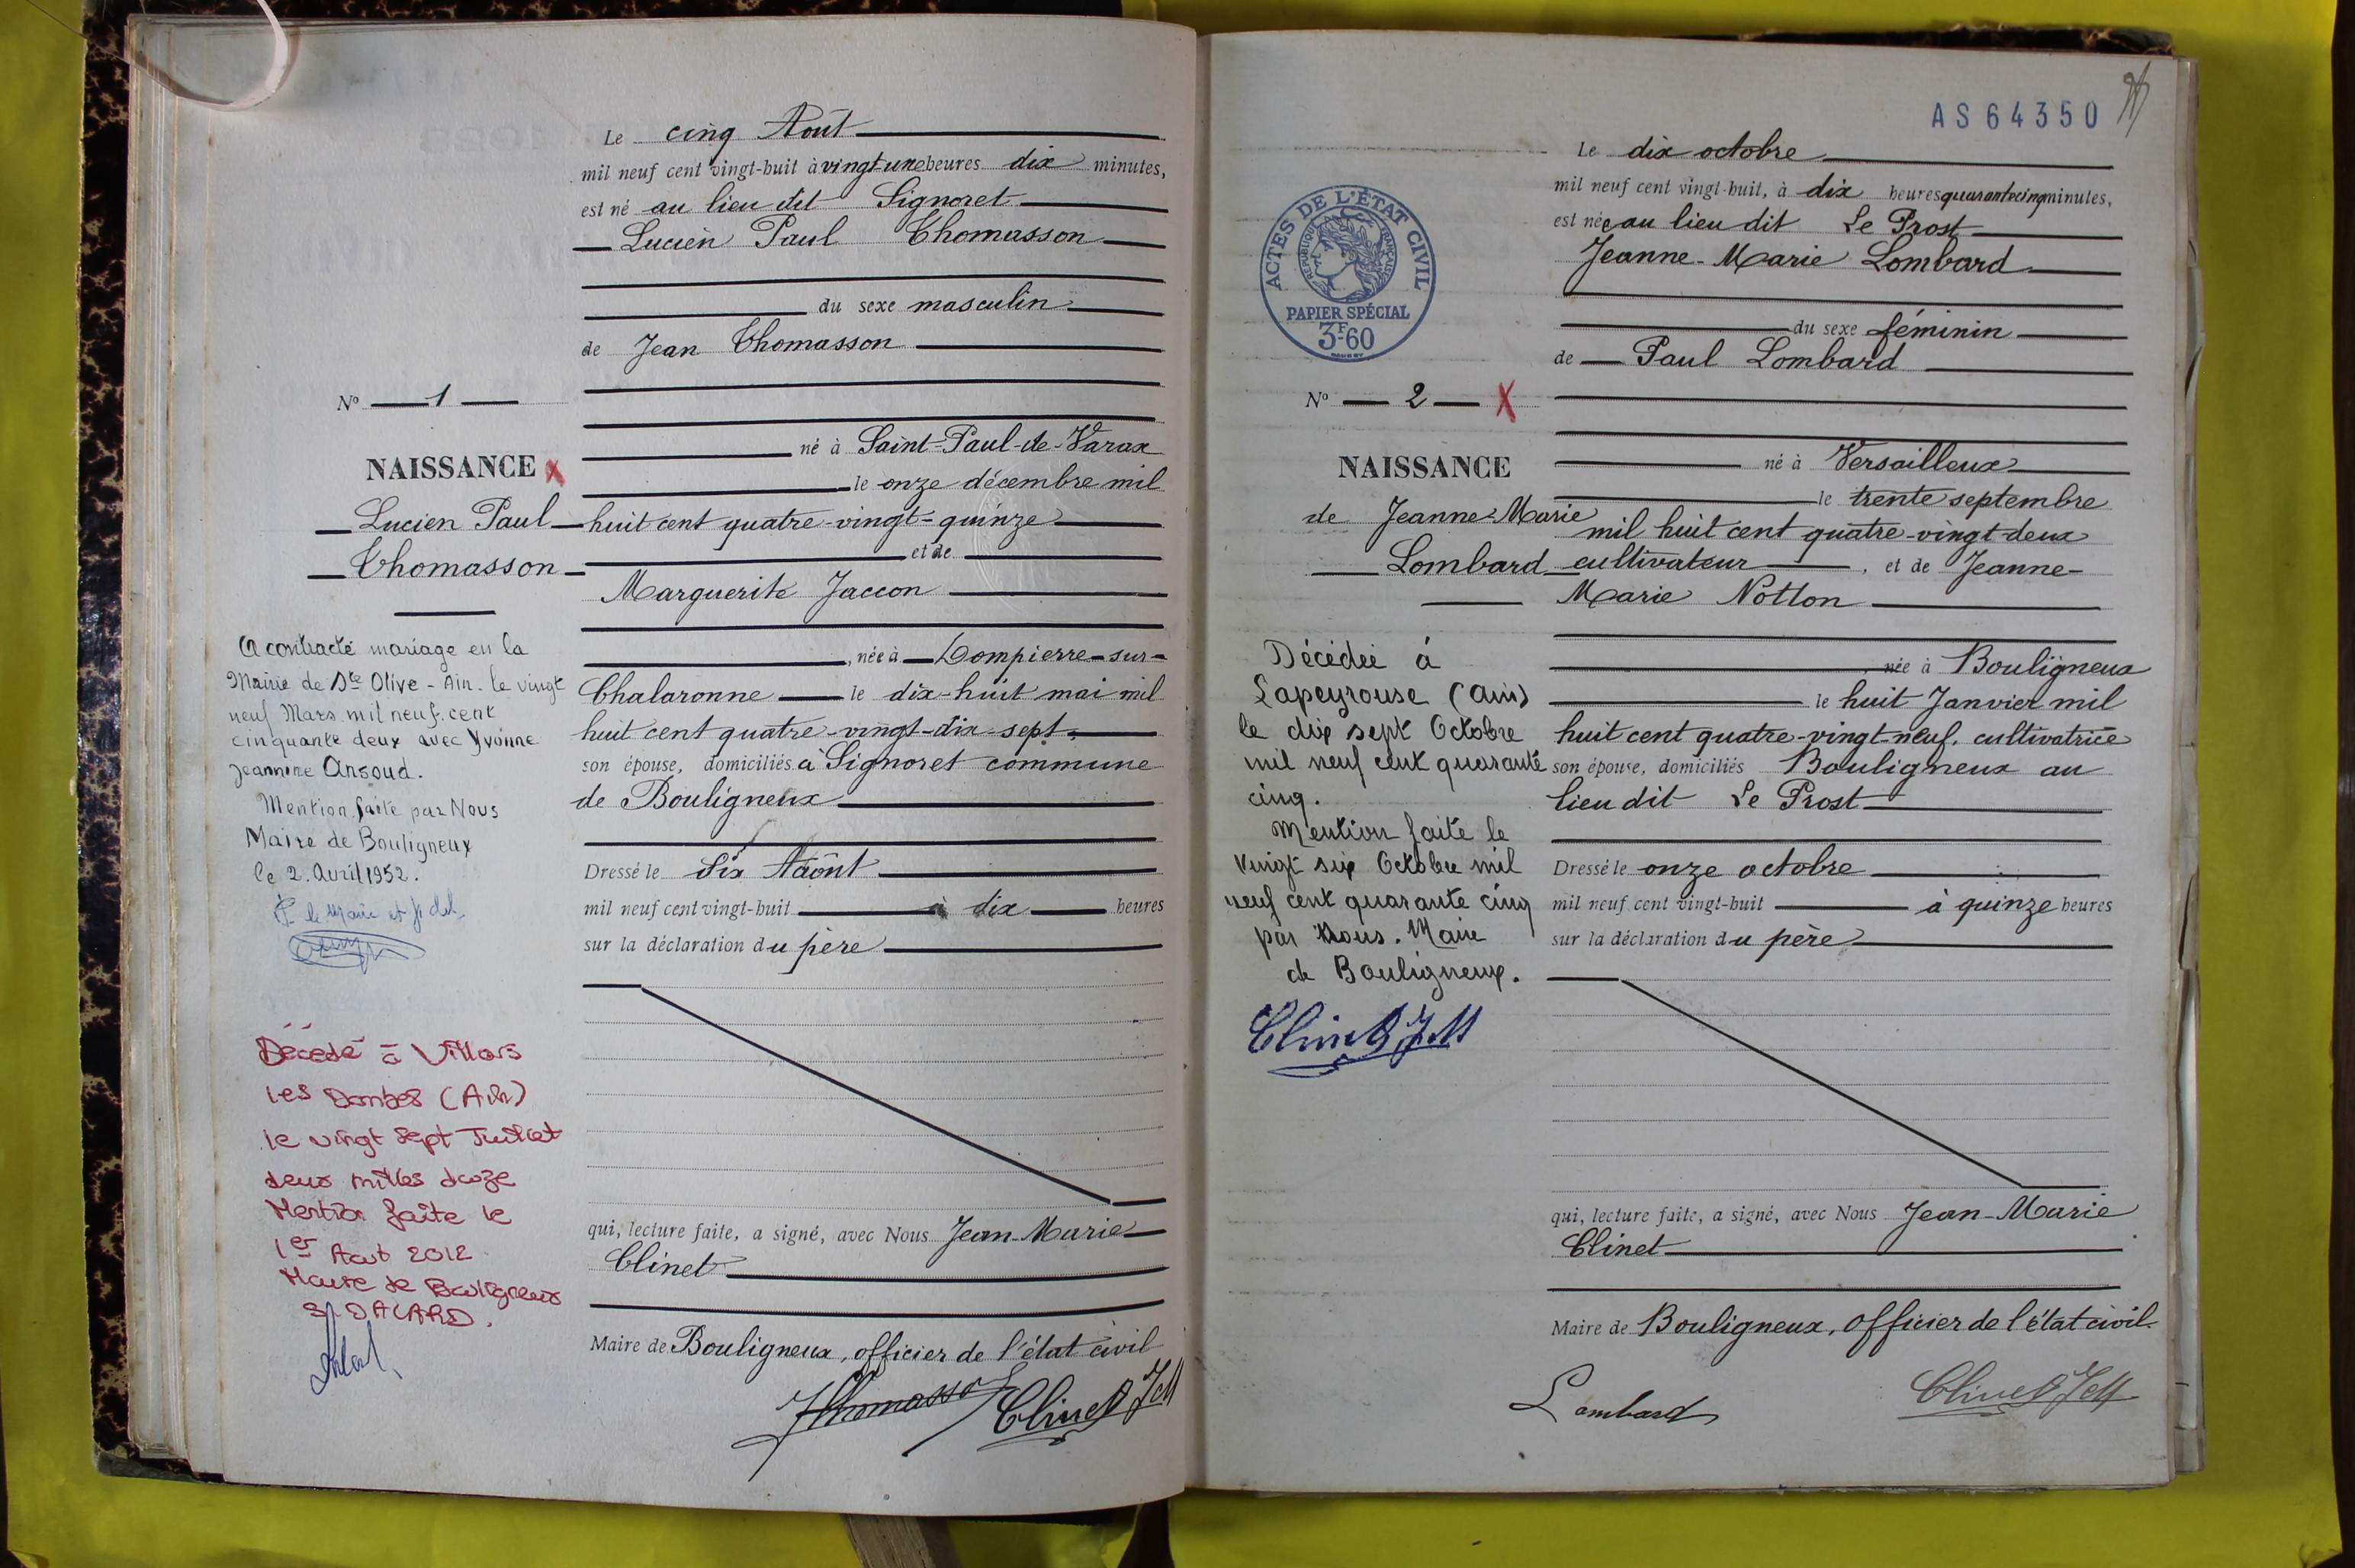 Le cinq Août
mil neuf cent vingt-huit à vingt une heures dix minutes,
est né au lieu dit Signoret
Lucien Paul Thomasson
du sexe masculin
de Jean Thomasson
né à Saint-Paul-de-Varax
le onze décembre mil
huit cent quatre-vingt-quinze
et de
Marguerite Jaccon
, née à Dompierre-sur-
Chalaronne le dix-huit mai mil
huit cent quatre-vingt-dix-sept,
son épouse, domiciliés à Signoret commune
de Bouligneux
Dressé le six Août
mil neuf cent vingt-huit à dix heures
sur la déclaration du père
qui, lecture faite, a signé, avec Nous Jean-Marie
Clinet
Maire de Bouligneux, officier de l'état civil
JThomasson Clinet JM
N° 1
NAISSANCE X
Lucien Paul
Thomasson
A contracté mariage en la
Mairie de Ste Olive - Ain - le vingt
neuf Mars mil neuf cent
cinquante deux avec Yvonne
Jeannine Ansoud.
Mention faite par Nous
Maire de Bouligneux
le 2. Avril 1952.
Décédé à Villars
les Dombes (Ain)
le vingt sept Juillet
deux milles douze
Mention faite le
1er Aout 2012
Maire de Bouligneux
AS 64350
Le dix octobre
mil neuf cent vingt-huit, à dix heures quarante cinq minutes,
est née au lieu dit Le Prost
Jeanne-Marie Lombard
du sexe féminin
de Paul Lombard
né à Versailleux
le trente septembre
mil huit cent quatre-vingt-deux
cultivateur , et de Jeanne-
Marie Notton
, née à Bouligneux
le huit Janvier mil
huit cent quatre-vingt-neuf, cultivatrice
son épouse, domiciliés Bouligneux au
lieu dit Le Prost
Dressé le onze octobre
mil neuf cent vingt-huit à quinze heures
sur la déclaration du père
qui, lecture faite, a signé, avec Nous Jean-Marie
Clinet
Maire de Bouligneux, officier de l'état civil.
Lombard Clinet JM
ACTES DE L'ÉTAT CIVIL
RÉPUBLIQUE FRANÇAISE
PAPIER SPÉCIAL
3F60
N° 2 X
NAISSANCE
de Jeanne-Marie
Lombard
Décédée à
Lapeyrouse (Ain)
le dix sept Octobre
mil neuf cent quarante
cinq.
Mention faite le
vingt six Octobre mil
neuf cent quarante cinq
par Nous. Maire
de Bouligneux.
Clinet JM